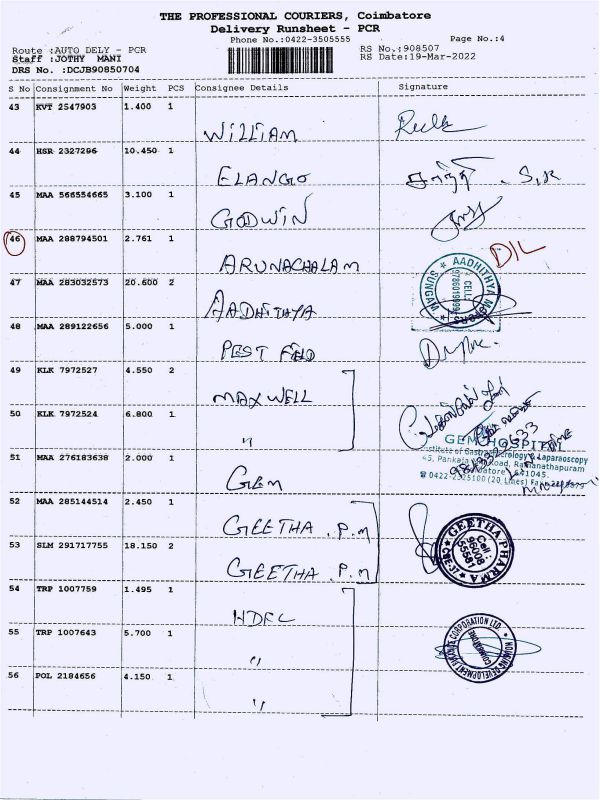 THE PROFESSIONAL COURIERS, Coimbatore
Delivery Runsheet - PCR
Phone No.:0422-3505555
Page No.:4
Route :AUTO DELY - PCR
RS No.:908507
Staff :JOTHY MANI
RS Date:19-Mar-2022
DRS No. :DCJB90850704
S No Consignment No Weight PCS Consignee Details Signature
43 KVT 2547903 1.400 1
WILLIAM
44 HSR 2327296 10.450 1
ELANGO
S.K
45 MAA 566554665 3.100 1
GODWIN
46 MAA 288794501 2.761 1
ARUNACHALAM
D/L
47 MAA 283032573 20.600 2
AADHITHYA
AADHITHYA MOTORS
CELL:
SUNGAM
48 MAA 289122656 5.000 1
PEST FIELD
49 KLK 7972527 4.550 2
MAXWELL
50 KLK 7972524 6.800 1
"
GEM HOSPITAL
Institute of Gastroenterology & Laparaoscopy
45, Pankaja Mill Road, Ramanathapuram
Coimbatore - 641045.
51 MAA 276183638 2.000 1
GEM
0422-2325100 (20 Lines)
52 MAA 285144514 2.450 1
GEETHA . P.M
GEETHA PHARMA
Cell :
96008
55581
CBE-37
53 SLM 291717755 18.150 2
GEETHA . P.M
54 TRP 1007759 1.495 1
HDFC
55 TRP 1007643 5.700 1
"
HOUSING DEVELOPMENT FINANCE CORPORATION LTD.
COIMBATORE
56 POL 2184656 4.150 1
"